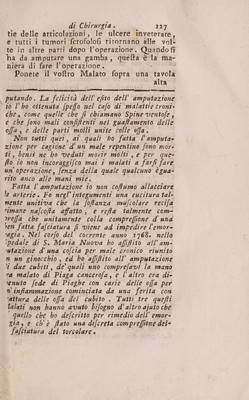 di Chirurgia. 127
tie delle articolazioni, le ulcere inveterate,
e tutti i tumori scrofolosi ritornano alle vol-
te in altre parti dopo l'operazione. Quando si
ha da amputare una gamba, questa è la ma-
niera di fare l'operazione.
Ponete il vostro Malato sopra una tavola
alta
putando. La felicità dell'esito dell'amputazione
io l'ho ottenuta spesso nel caso di malattie croni-
che, come quelle che si chiamano Spine ventose,
e che sono mali consistenti nel guastamento delle
ossa, e delle parti molli unite colle ossa.
Non tutti quei, ai quali ho fatta l'amputa-
zione per cagione d'un male repentino sono mor-
ti, bensì ne ho veduti morir molti, e per que-
sto io non incoraggisco mai i malati a farsi fare
un'operazione, senza della quale qualcuno è gua-
rito anco alle mani mie.
Fatta l'amputazione io non costumo allacciare
le arterie. Fo negl'integumenti una cucitura tal-
mente unitiva che la sostanza muscolare recisa
rimane nascosta affatto, e resta talmente com-
pressa che unitamente colla compressione d'una
ben fatta fasciatura si viene ad impedire l'emor-
ragia. Nel corso del corrente anno 1768. nello
Spedale di S. Maria Nuova ho assistito all'am-
putazione d'una coscia per male cronico riunito
in un ginocchio, ed ho assistito all'amputazione
di due cubiti, de' quali uno comprese la mano
era malato di Piaga cancerosa, e l'altro era di-
venuto sede di Piaghe con carie delle ossa per
un'infiammazione cominciata da una ferita con
frattura delle ossa del cubito. Tutti tre questi
Malati non hanno avuto bisogno d'altro ajuto che
di quello che ho descritto per rimedio dell'emor-
ragia, e ch'è stato una discreta compressione del-
la fasciatura del torcolare.